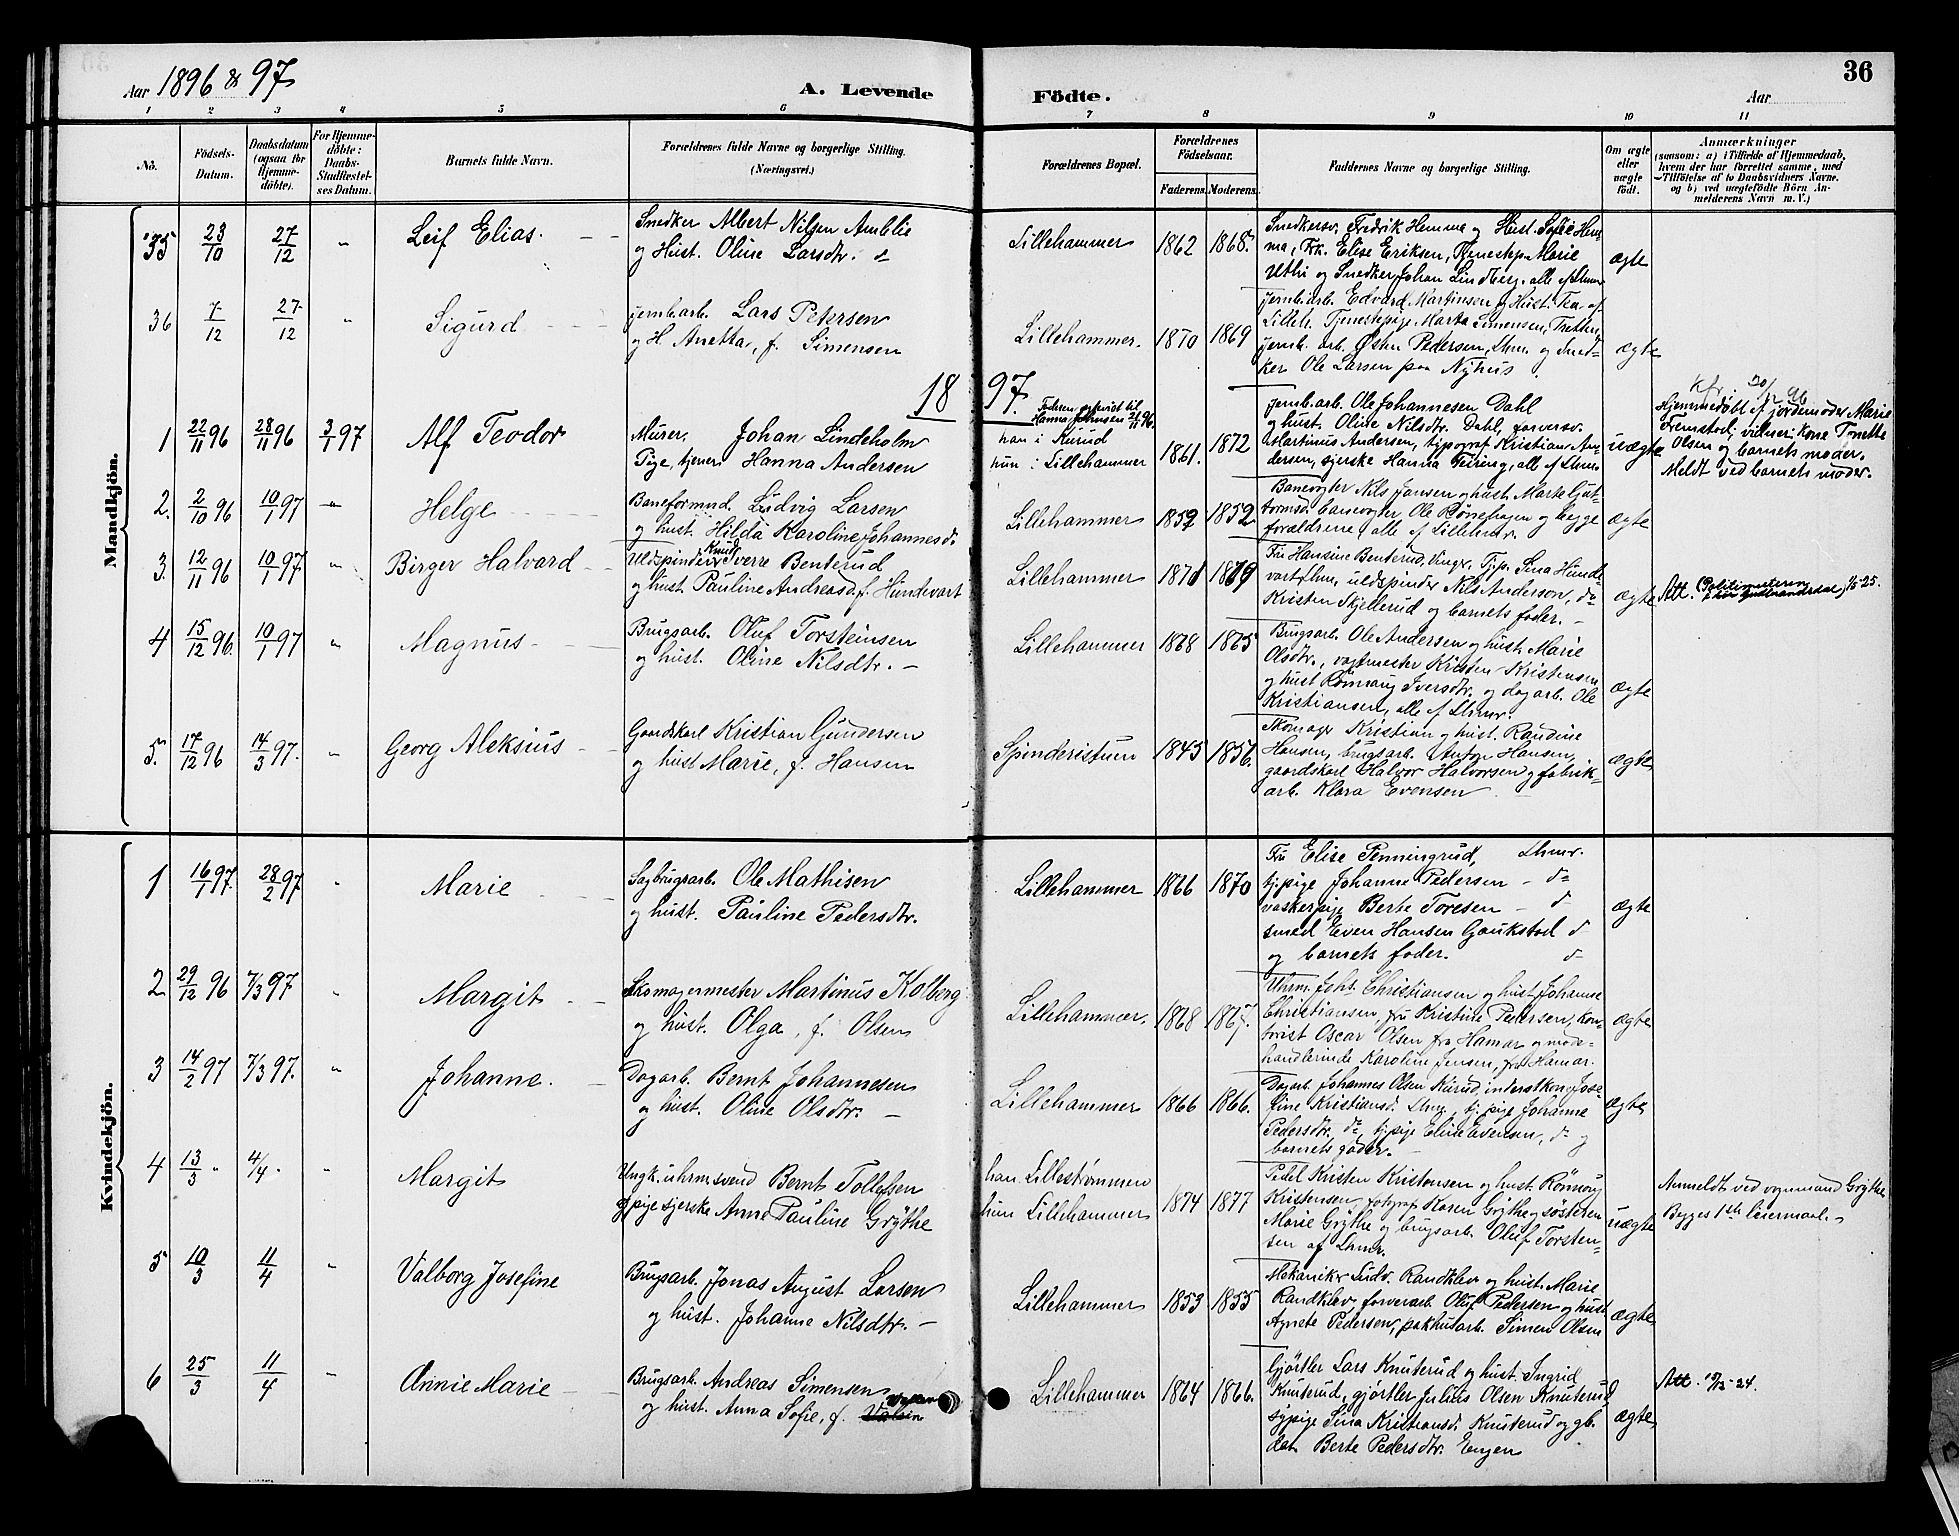 Aar 1896 & 97
A. Levende Födte.
Aar
36
1 2 3 4 5 6 7 8 9 10 11
No.
Födsels-Datum.
Daabsdatum (ogsaa for Hjemmedöbte).
For Hjemmedöbte: Daabs-Stadfæstelses Datum.
Barnets fulde Navn.
Forældrenes fulde Navne og borgerlige Stilling. (Næringsvei.)
Forældrenes Bopæl.
Forældrenes Födselsaar.
Faderens. Moderens.
Faddernes Navne og borgerlige Stilling.
Om ægte eller uægte födt.
Anmærkninger
(saasom: a) i Tilfælde af Hjemmedaab, hvem der har forrettet samme, med Tilföielse af to Daabsvidners Navne. og b) ved uægtefödte Börn Anmelderens Navn m. V.)
Mandkjön.
35 23/10 27/12 " Leif Elias.
Snedker Albert Nilsen Amblie
og Hust. Oline Larsdtr.
Lillehammer 1862 1868.
Snedkersv. Fredrik Hemma og Hust. Sofie Hem-
ma, Frk. Elise Eriksen, Tjenestep. Marie
Uthi og Snedker Johan Lindberg. alle af Lhmr
ægte
36 7/12 27/12 " Sigurd
jernb.arb. Lars Petersen
og H Anetta, f. Simensen
Lillehammer. 1870 1869
jernb.arb. Edvard Martinsen og Hust. Tea af
Lilleh. Tjenestepige Marta Simensen, Tretten,
jernb. arb. Østen Pedersen, Lhm. og Sned-
ker Ole Larsen paa Nyhus.
ægte
18 97.
1 22/11 96 28/11 96 3/1 97 Alf Teodor
Murer, Johan Lindeholm
Pige, tjener Hanna Andersen
han i Kurud
hun i Lillehammer
1861. 1872
jernb.arb. Ole Johannesen Dahl
og hust. Oline Nilsdtr. Dahl, farversv.
Martinus Andersen, typograf Kristian An-
dersen, sjerske Hanna Feiring, alle af Lhmr
uægte
Hjemmedöbt af jordemoder Marie
Fremstad, vidner: kone Tonette
Olsen og barnets moder.
Meldt ved barnets moder.
2. 2/10 96 10/1 97 " Helge
Baneformnd. Ludvig Larsen
og hust. Hilda Karoline Johannesd.
Lillehammer 1859 1852
Banevogter Nils Jansen og hust. Marte Gut-
tormsd. banevogter Ole Bønehagen og begge
forældrene, alle af Lillehmr.
ægte
3. 12/11 96 10/1 97. " Birger Halvard
Uldspinder Knud Sverre Benterud
og hust. Pauline Andreasd. f. Hundevart
Lillehammer 1871 1869
Fru Hansine Benterud, Ringr. Tjp. Sina Hunde-
vart, Lhm, uldspinder Nils Anderson, do
Kristen Skjellerud og barnets fader. -
ægte
Att.
4 15/12 96. 10/1 97 " Magnus
Brugsarb. Oluf Torsteinsen
og hust. Oline Nilsdtr.
Lillehammer 1868 1865
Brugsarb. Ole Andersen og hust. Marie
Olsdtr., vagtmester Kristen Kristensen
og hust Rönnaug Iversdtr. og dagarb. Ole
Kristiansen, alle af Lhmr.
ægte
5. 17/12 96 14/3 97. " Georg Aleksius
Gaardskarl Kristian Gundersen
og hust Marie, f. Hansen
Spinderistuen 1845 1856.
Skomager Kristian og hust. Randine
Hansen, brugsarb. Anton Hansen,
gaardskarl Halvor Halvorsen og fabrik-
arb. Klara Evensen
ægte
Kvindekjön.
1 16/1 97. 28/2 97 " Marie
Sagbrugsarb. Ole Mathisen
og hust. Pauline Pedersdtr.
Lillehammer 1866 1870
Fru Elise Penningrud, Lhmr.
tj.pige Johanne Pedersen - do
vaskerpige Berte Toresen - d
smed Even Hansen Gaukstad d
og barnets fader. d
ægte
2 29/12 96 7/3 97 " Margit
Skomagermester Martinus Kolberg
og hust. Olga, f. Olsen
Lillehammer. 1868 1867.
Uhrm. Joh. Christiansen og hust. Johanne
Christiansen, fru Kristine Pedersen, kon-
torist Oscar Olsen fra Hamar og mode-
handlerinde Karoline Jensen, fra Hamar.
ægte
3 14/2 97 7/3 97. " Johanne.
Dagarb. Bernt Johannesen
og hust. Oline Olsdtr.
Lillehammer 1866 1866.
Dagarb. Johannes Olsen Kurud, inderstkone Jose-
fine Kristiansd. Lhmr, tj.pige Johanne
Pedersdtr. do, tj.pige Elise Evensen, do og
barnets fader.
ægte
4 13/3 " 4/4 " Margit
Ungk. uhrm.svend Bernt Tollefsen
og pige sjerske Anne Pauline Grythe
han. Lillestrømmen
hun Lillehammer
1874 1877
Pedel Kristen Kristensen og hust. Rönnaug
Kristensen, fotograf Karen Grythe og søsteren
Marie Grythe og brugsarb. Oluf Torsten-
sen af Lhmr.
uægte
Anmeldt ved vognmand Grythe
Begges 1ste leiermaal.
5 10/3 11/4 " Valborg Josefine
Brugsarb. Jonas August Larsen
og hust. Johanne Nilsdtr.
Lillehammer 1853 1855
Mekaniker Ludv. Randklev og hust. Marie
Randklev, farverarb. Oluf Pedersen og hust
Agnete Pedersen, pakhusarb. Simen Olsen
ægte
6 25/3 11/4 " Annie Marie
Brugsarb. Andreas Simensen
og hust. Anna Sofie, f.
Lillehammer 1864 1866.
Gjörtler Lars Knuterud og hust. Ingrid
Knuterud, gjörtler Julius Olsen Knuterud,
sypige Sina Kristiansd. Knuterud og gb.
dat. Berte Pedersdtr. Engen
ægte
Att.